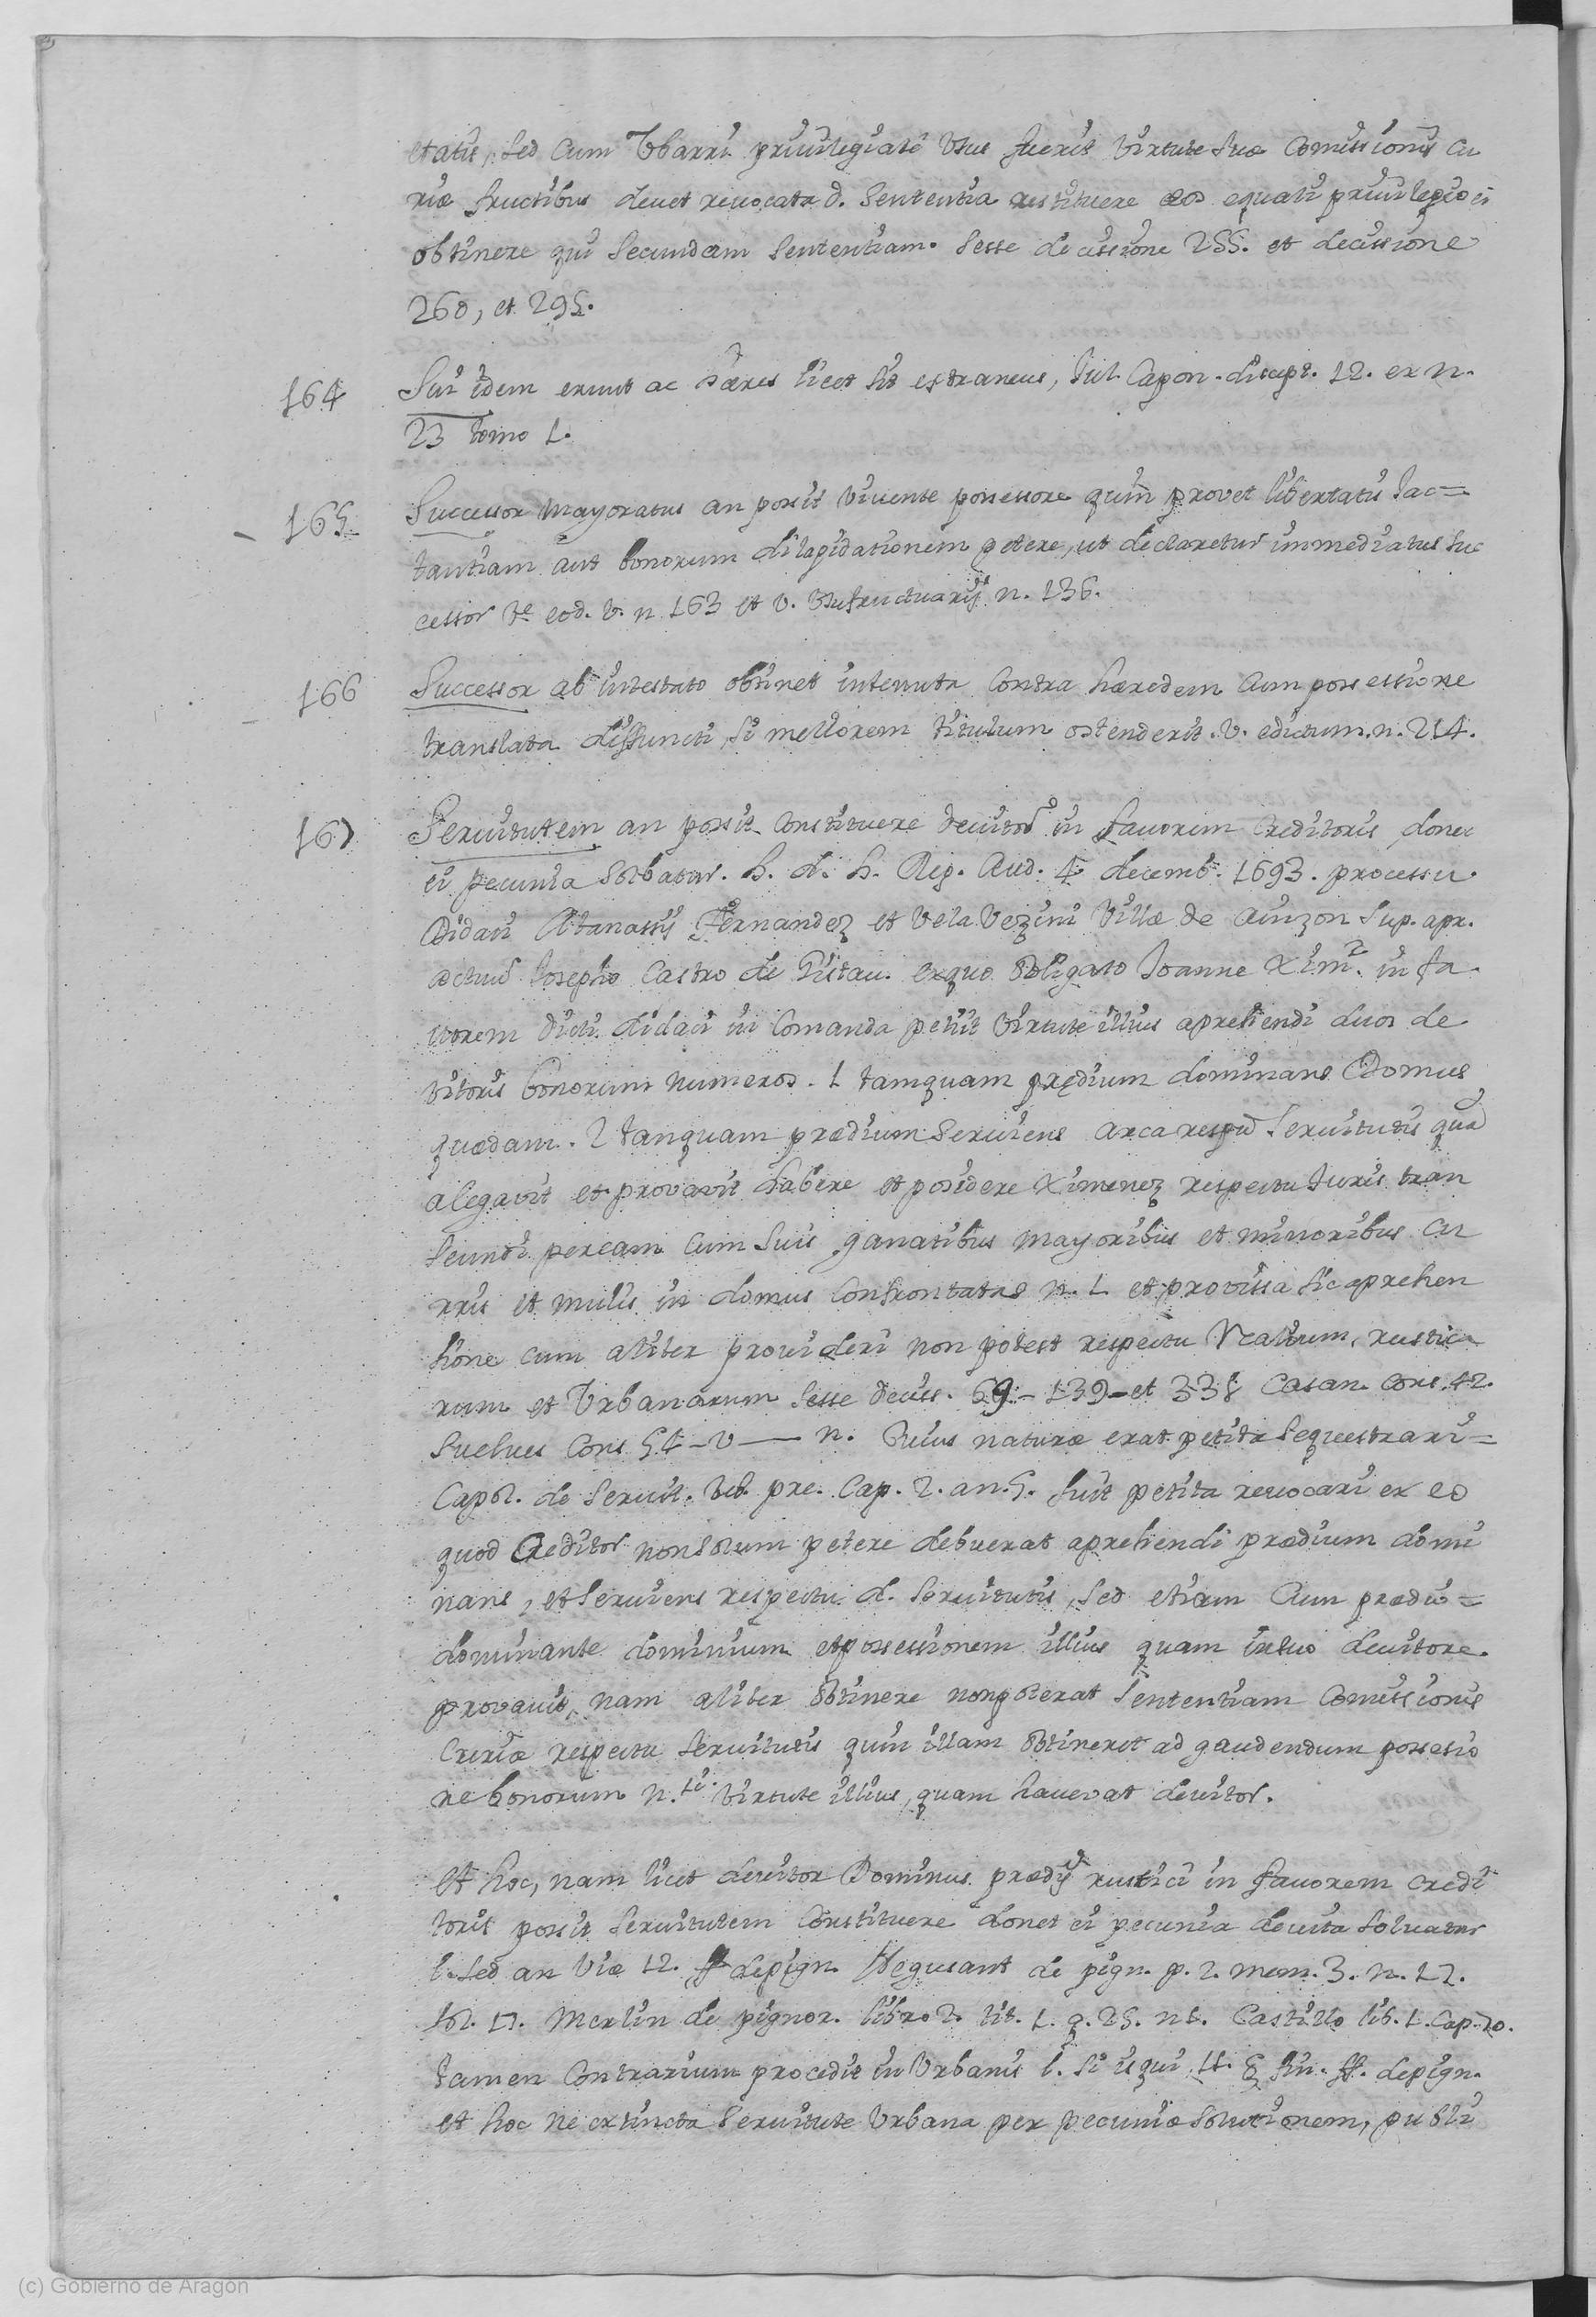 etatis, sed cum Ybarri privilegiate usus fuerit virtute suæ comissionis cu
riæ fructibus devet revocata d. sententia restituere eos equati privilegio ei
obtinere qui secundam sententiam. Sesse decissione 255. et decissione
260, et 295.
164 Sui idem erunt ac hæres licet sit estraneus, Jul. Capon. discept. 12. ex n.
23 tomo 1.
165 Successor mayoratus an possit vivente possessore quin provet libertatis Jac=
tantiam aut bonorum dilapidationem petere, ut declaretur immediatus suc
cessor Ve eod. v. n 163 et v. Usufructuarij n. 136.
166 Successor ab intestato obtinet intenta contra hæredem cum possessione
translata deffuncti, si meliorem titulum ostenderit. v. edictum. n. 214.
167 Servitutem an possit constituere devitor in favorem creditoris, donec
ei pecunia solbatur. h. d. h. Reg. Aud. 4 decemb. 1693. processu
Didaci Atanasij Fernandez et Vela Vezini Villæ de Ainzon sup. apr.
actuar Josepho Castro de Gistau. exquo obligato Joanne Ximz. in fa
vorem dicti didaci in comanda petiit virtute illius aprehendi duos de
vitoris bonorum numeros. 1 tamquam prędium dominans Domus
quædam. 2 tanquam prædium serviens arca respu servitutis qua
alegavit et provavit habere et posidere Ximenez respectu Juris tran
seundi per eam cum suis ganatibus mayoribus et minoribus cu
rris et mulis in domus confrontatas n. 1 et provissa sic aprehen
sione cum aliter provideri non potest respectu Realium, rustica
rum et Urbanarum Sesse deciss. 69 - 139 - et 338 Casan. cons. 42.
Suelves Cons. 54 - v — n. Cuius naturæ erat petita sequestrari =
Capol. de servit. Urb. pre. Cap. 2. a n. 5. fuit petita revocari ex eo
quod Creditor non solum petere debuerat aprehendi prædium domi
nans, et serviens respectu d. servitutis, sed etiam cum prædio =
dominante dominium et possessionem illius quam in suo devitore
provavit, nam aliter obtinere non poterat sententiam comissionis
Curiæ respectu servitutis quin illam obtineret ad gaudendum possesio
ne bonorum n. 1i. virtute illius, quam haverat devitor.
Et hoc, nam licet devitor Dominus prædij rustici in favorem credi
toris possit servitutem constituere donec ei pecunia devita solvatur
l. sed an viæ 12. ff de pign. Negusant de pign. p. 2. mem. 3. n. 17.
fol. 17. Merlin de pignor. libro 2. tit. 1. q. 25. n 6. Castillo lib. 1. Cap. 70.
tamen contrarium procedit in Urbanis l. si is qui 11. § fin. ff. de pign.
et hoc ne extincta servitute Urbana per pecuniæ solutionem, publi